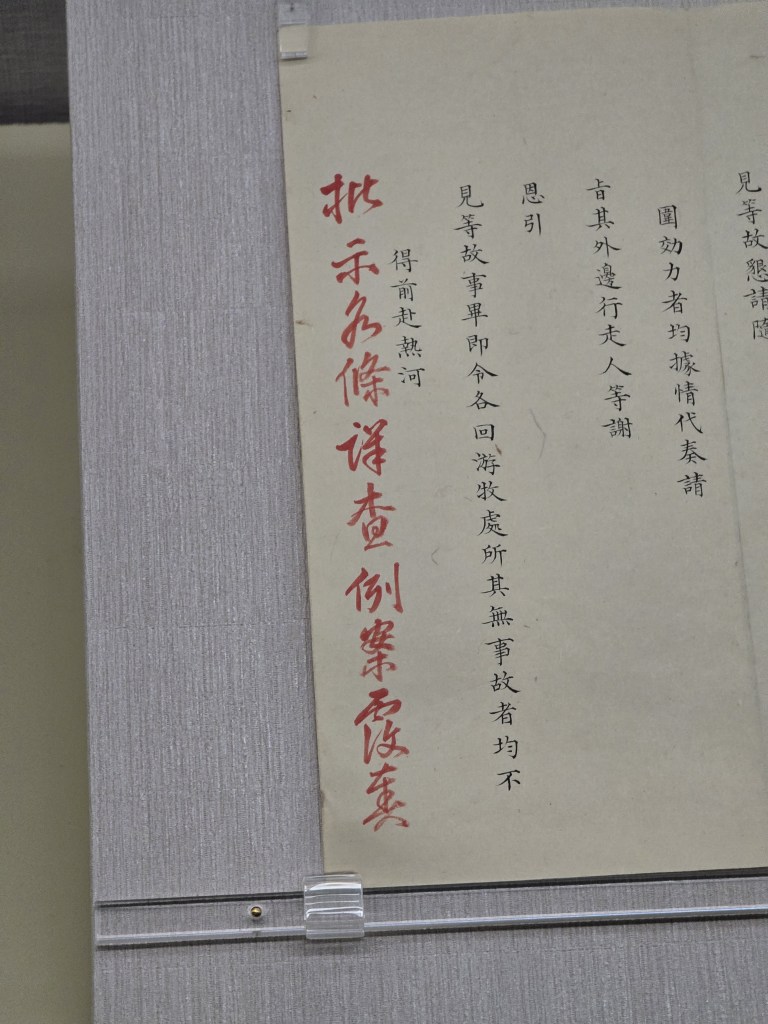 見等故懇請隨
圍効力者均據情代奏請
旨其外邊行走人等謝
恩引
見等故事畢即令各回游牧處所其無事故者均不
得前赴熱河
批示各條詳查例案覆奏